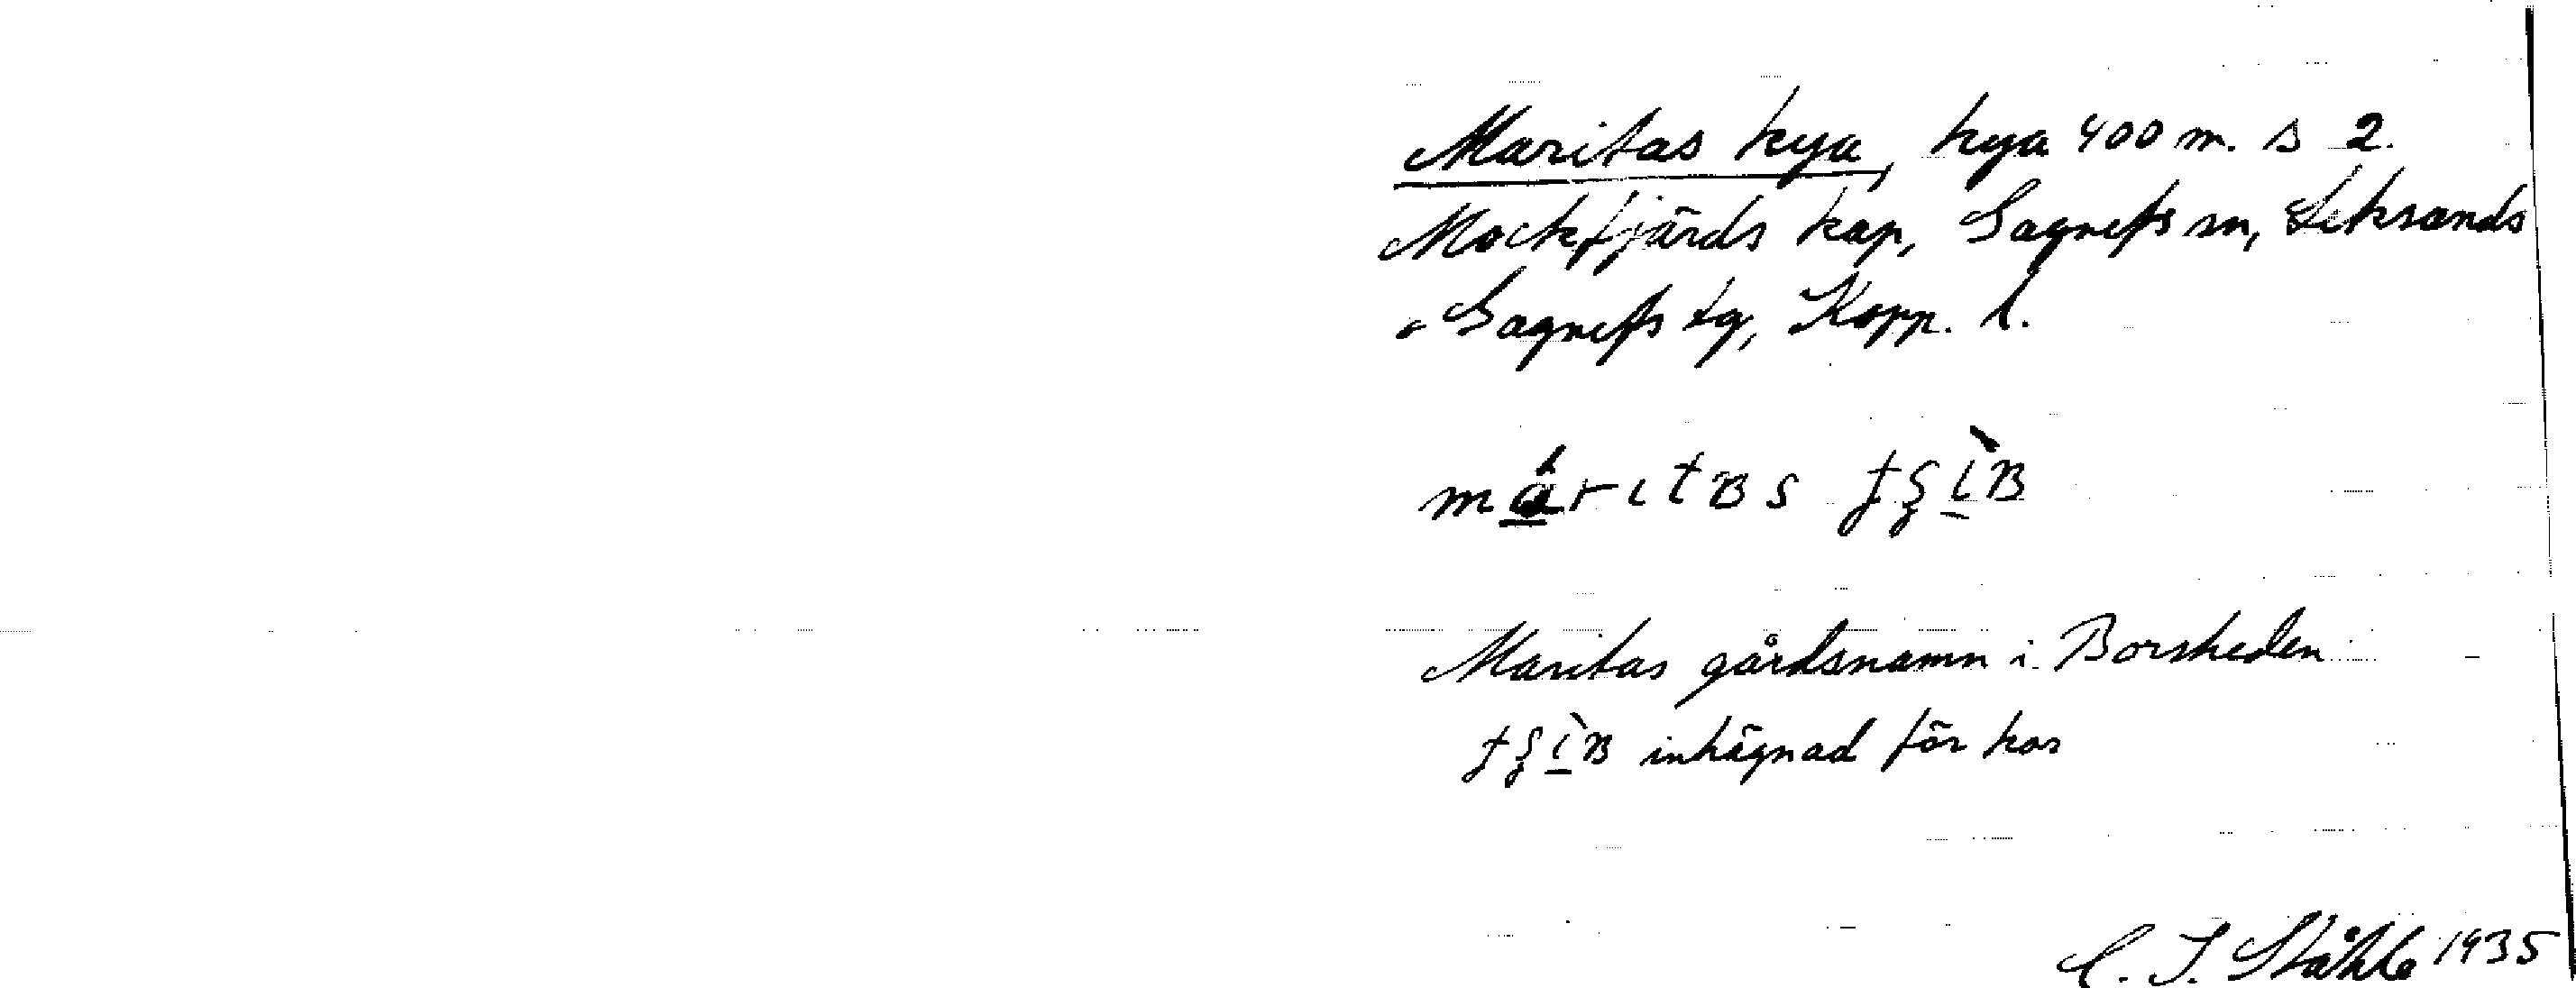 Maritas kya, kya 400 m. s 2.
Mockfjärds kap, Gagnefs sn, Leksands
o Gagnefs tg, Kopp. l.
Maritas gårdsnamn i Borsheden
inhägnad för kor
C. I. Ståhle 1935